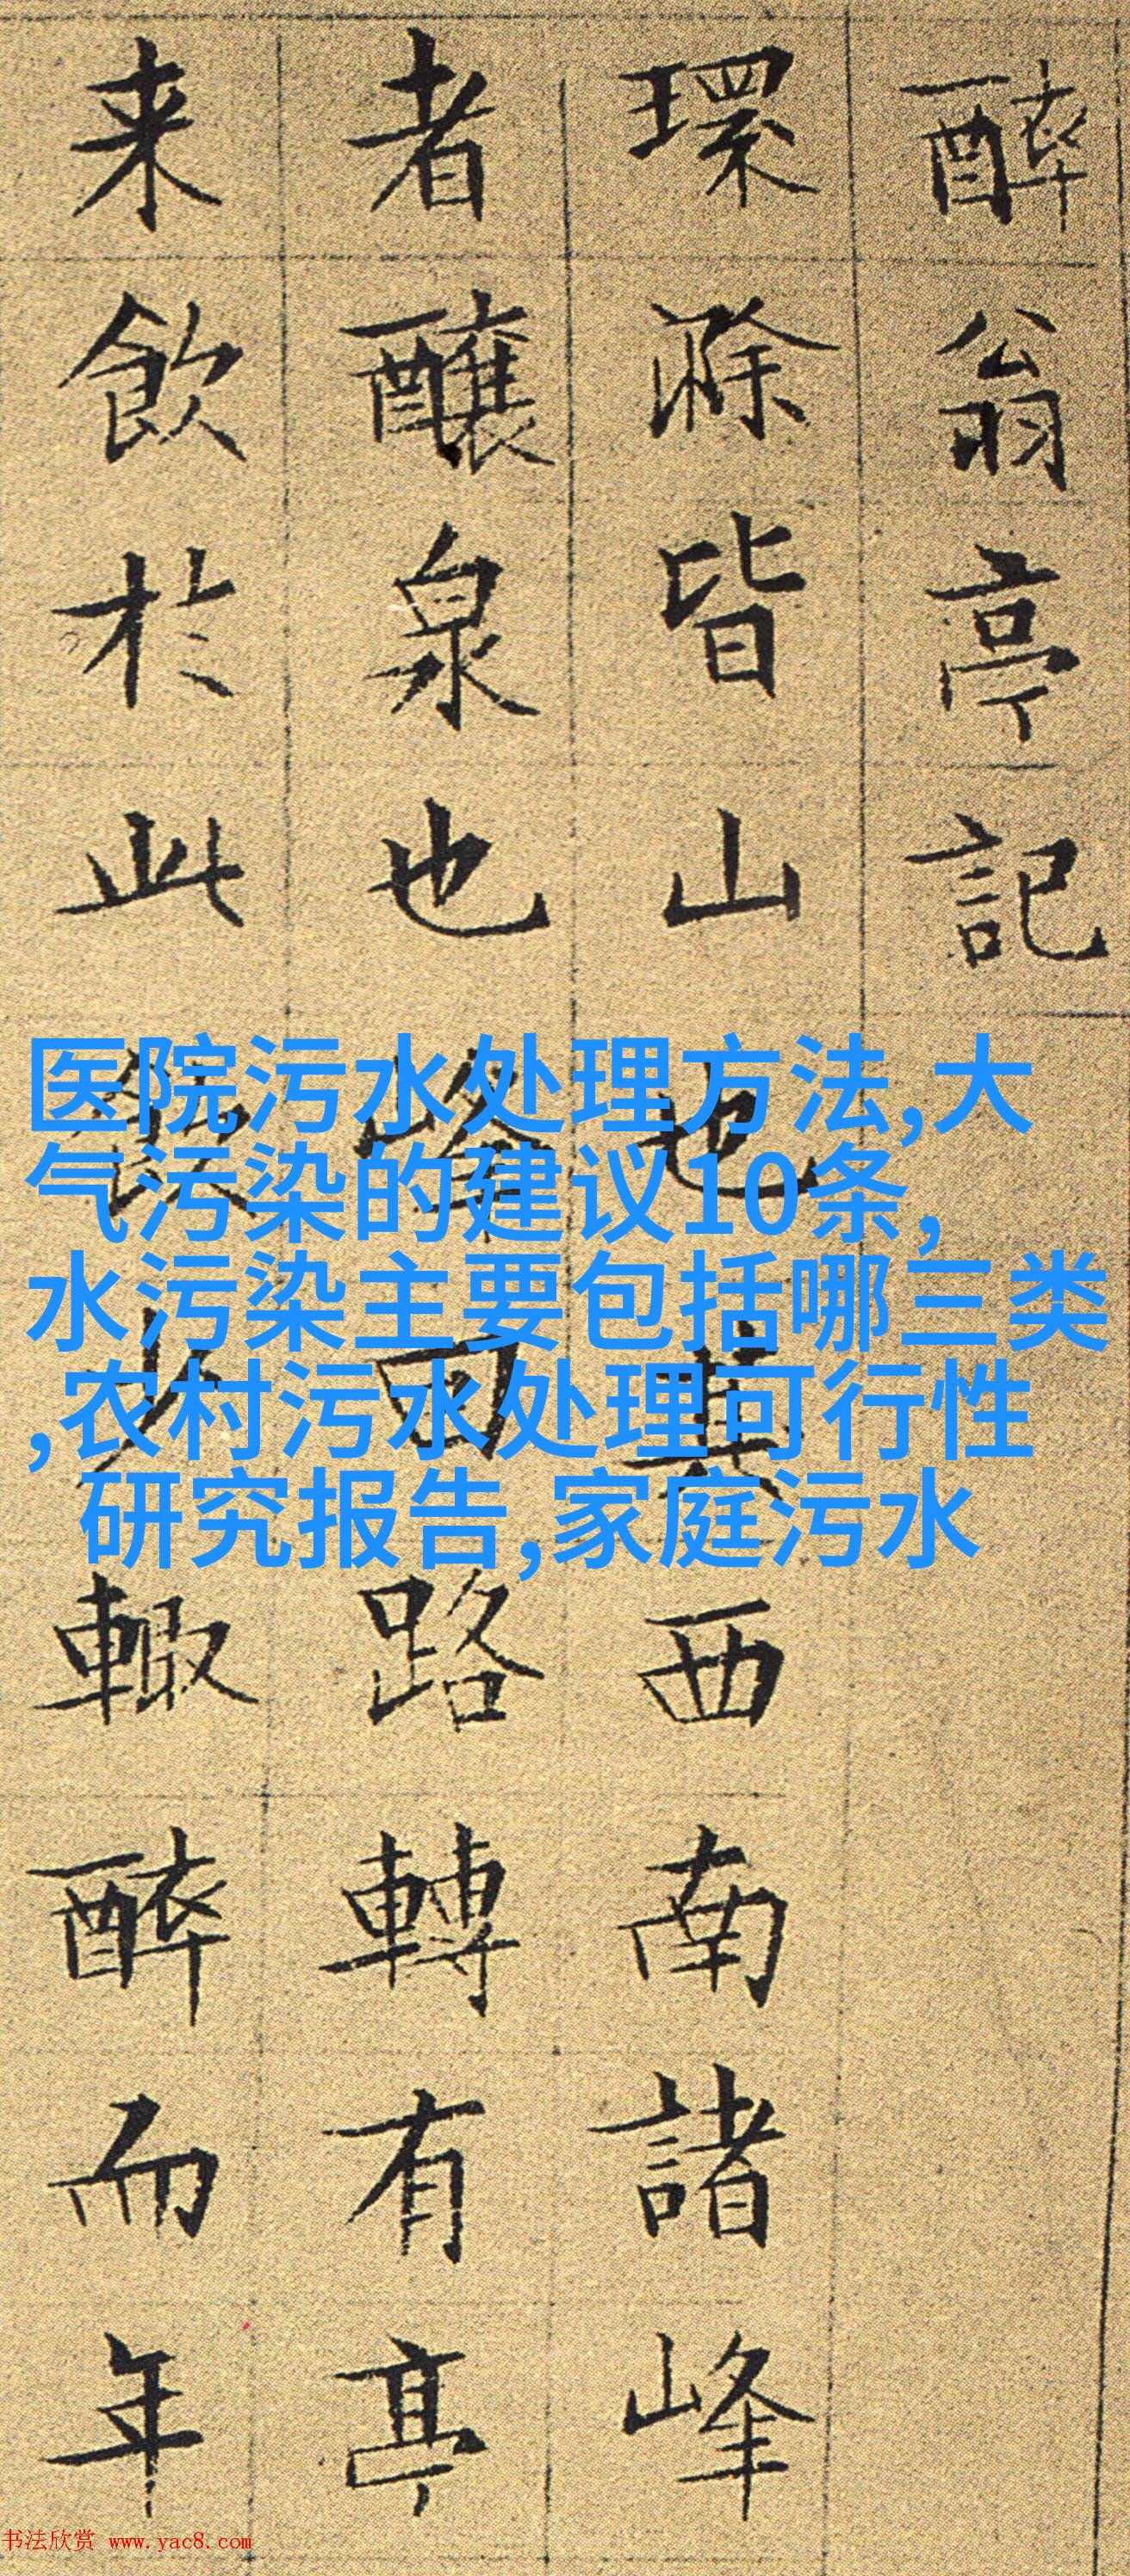 醉翁亭記
環滁皆山也其西南諸峰
者釀泉也峰回路轉有亭
来飲於此飲少輒醉而年
医院污水处理方法,大
气污染的建议10条,
水污染主要包括哪三类
,农村污水处理可行性
研究报告,家庭污水
书法欣赏 www.yac8.com